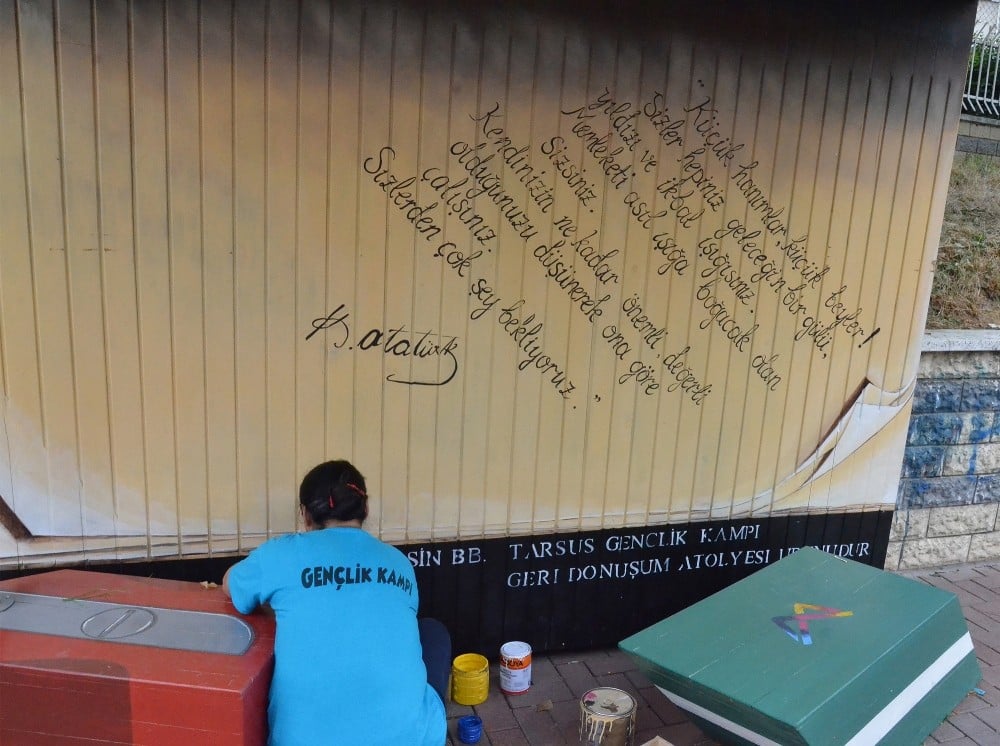 "Küçük hanımlar, küçük beyler!
Sizler hepiniz geleceğin bir gülü,
yıldızı ve ikbal ışığısınız.
Memleketi asıl ışığa boğacak olan
Sizsiniz.
Kendinizin ne kadar önemli, değerli
olduğunuzu düşünerek ona göre
çalışınız.
Sizlerden çok şey bekliyoruz."
K. atatürk
SİN BB. TARSUS GENÇLİK KAMPI
GERİ DÖNÜŞÜM ATÖLYESİ ÜRÜNÜDÜR
GENÇLİK KAMPI